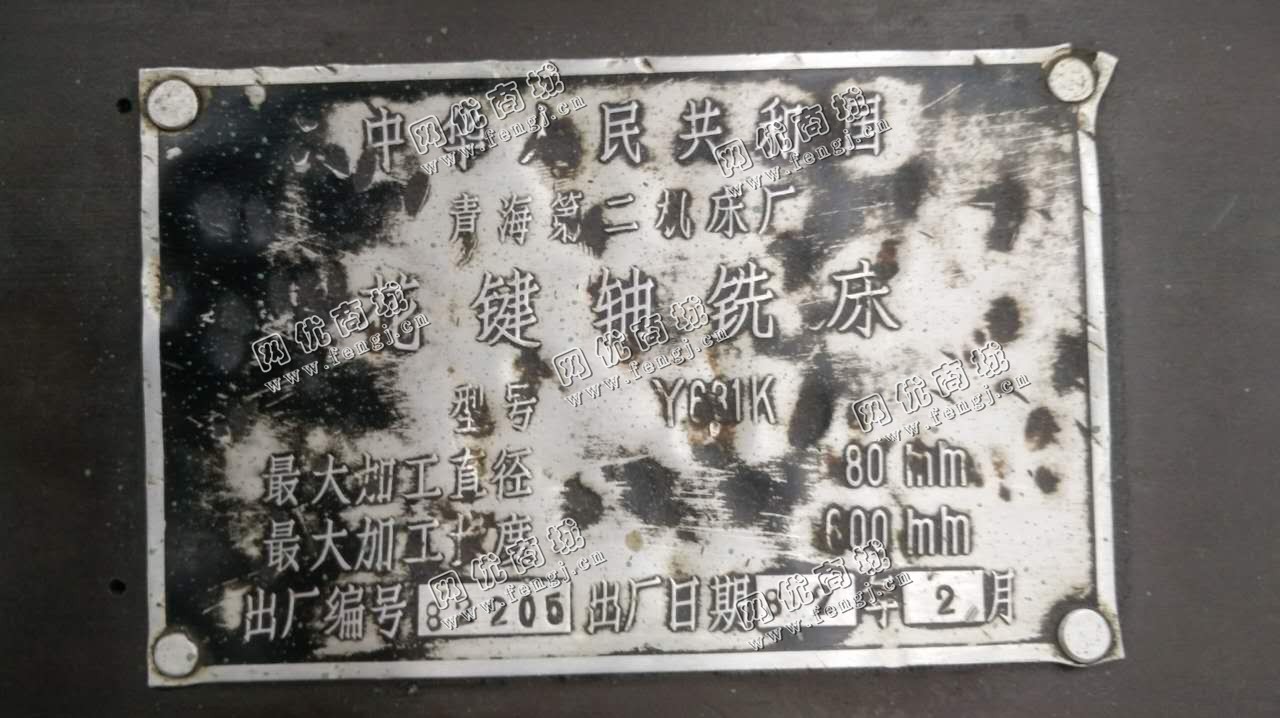 中华人民共和国
青海第二机床厂
花键轴铣床
型号 Y631K
最大加工直径 80 mm
最大加工长度 600 mm
出厂编号 205 出厂日期 年 2 月
网优商城
www.fengj.cn
网优商城
www.fengj.cn
网优商城
www.fengj.cn
网优商城
www.fengj.cn
网优商城
www.fengj.cn
网优商城
www.fengj.cn
网优商城
www.fengj.cn